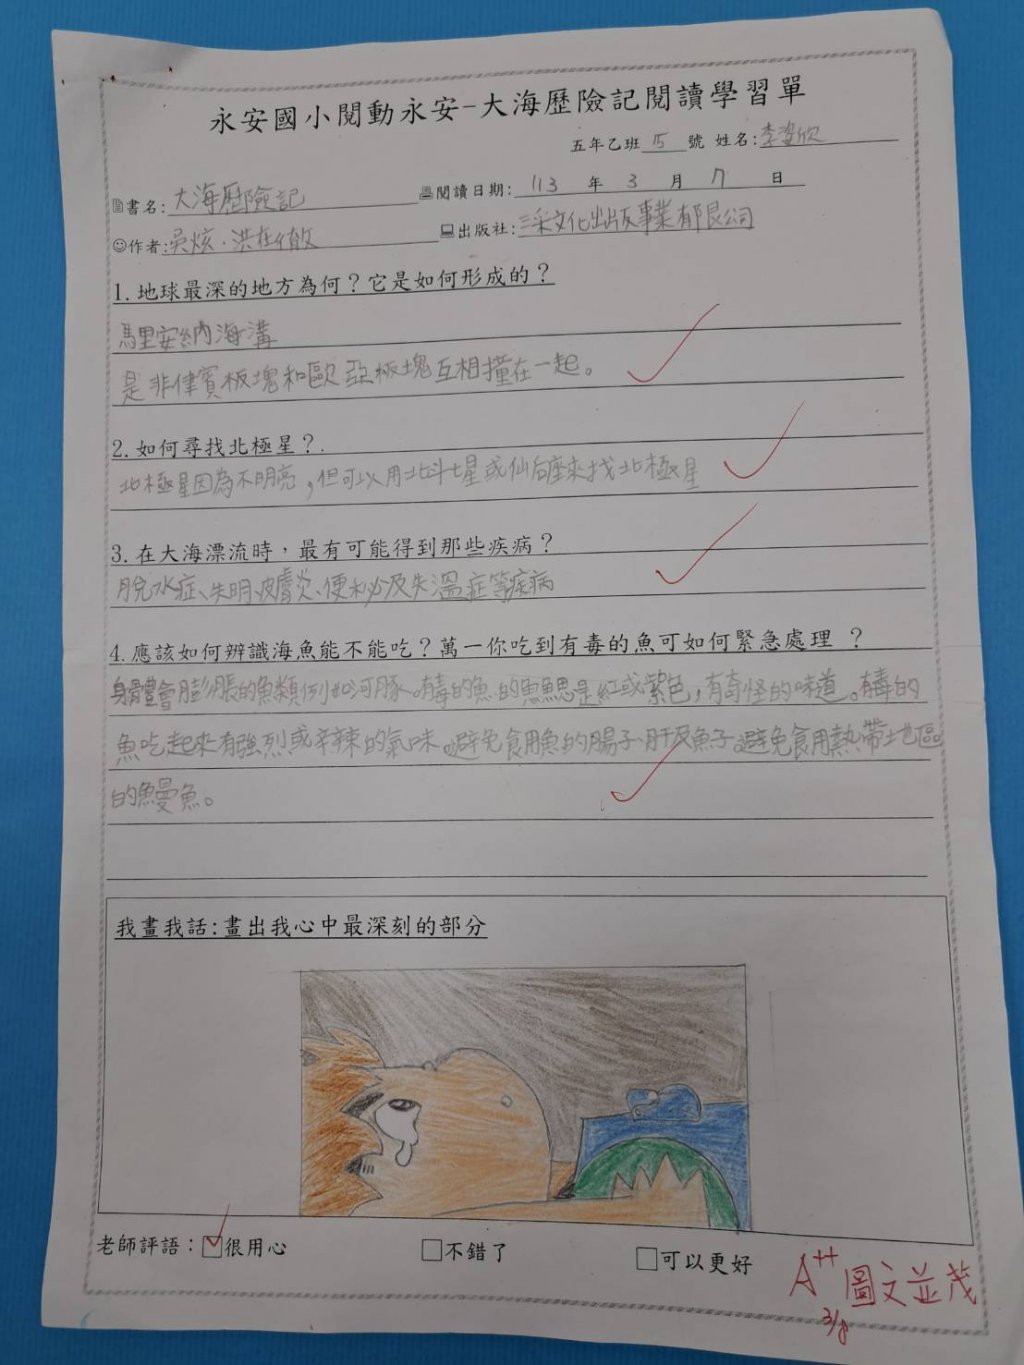 永安國小閱動永安-大海歷險記閱讀學習單
五年乙班 15 號 姓名:李姿欣
書名:大海歷險記 閱讀日期: 113 年 3 月 7 日
作者:吳炫·洪在徹 出版社:三采文化出版事業有限公司
1.地球最深的地方為何?它是如何形成的?
馬里安納海溝
是非律賓板塊和歐亞板塊互相撞在一起。
2.如何尋找北極星?
北極星因為不明亮,但可以用北斗七星或仙后座來找北極星
3.在大海漂流時,最有可能得到那些疾病?
脫水症、失明、皮膚炎、便秘及失溫症等疾病
4.應該如何辨識海魚能不能吃?萬一你吃到有毒的魚可如何緊急處理 ?
身體會膨脹的魚類例如河豚。有毒的魚的魚鰓是紅或紫色,有奇怪的味道。有毒的
魚吃起來有強烈或辛辣的氣味。避免食用魚的腸子、肝及魚子。避免食用熱帶地區
的鰻魚。
我畫我話:畫出我心中最深刻的部分
老師評語:☑很用心 □不錯了 □可以更好
A++ 圖文並茂
3/8